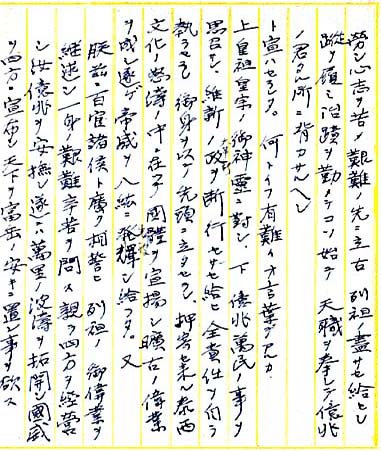 勞シ心志ヲ苦メ艱難ノ先ニ立古 列祖ノ盡サセ給ヒシ
蹤ヲ履ミ治蹟ヲ勤メテコソ始テ 天職ヲ奉シテ億兆
ノ君タル所ニ背カサルヘシ
ト宣ハセラル。何トイフ有難イオ言葉デアルカ
上皇祖皇宗ノ御神靈ニ對シ、下 億兆萬民ノ事ヲ
思召サレ、維新ノ政ヲ断行セサセ給ヒ全責任ヲ自ラ
執ラセラレ 御身ヲ以テ先頭ニ立タセラレ 押寄セ来ル泰西
文化ノ怒濤ノ中ニ在テ國體ヲ宣揚シ曠古ノ偉業
ヲ成シ遂ゲ帝威ヲ八紘ニ發輝シ給フタ。又
朕茲ニ百官諸侯ト廣ク相誓ヒ 列祖ノ御偉業ヲ
継述シ一身ノ艱難辛苦ヲ問ス親ラ四方ヲ経営
シ汝億兆ヲ安撫シ遂ニハ萬里ノ波濤ヲ拓開シ國威
ヲ四方ニ宣布シ天下ヲ富岳ノ安キニ置ン事ヲ欲ス